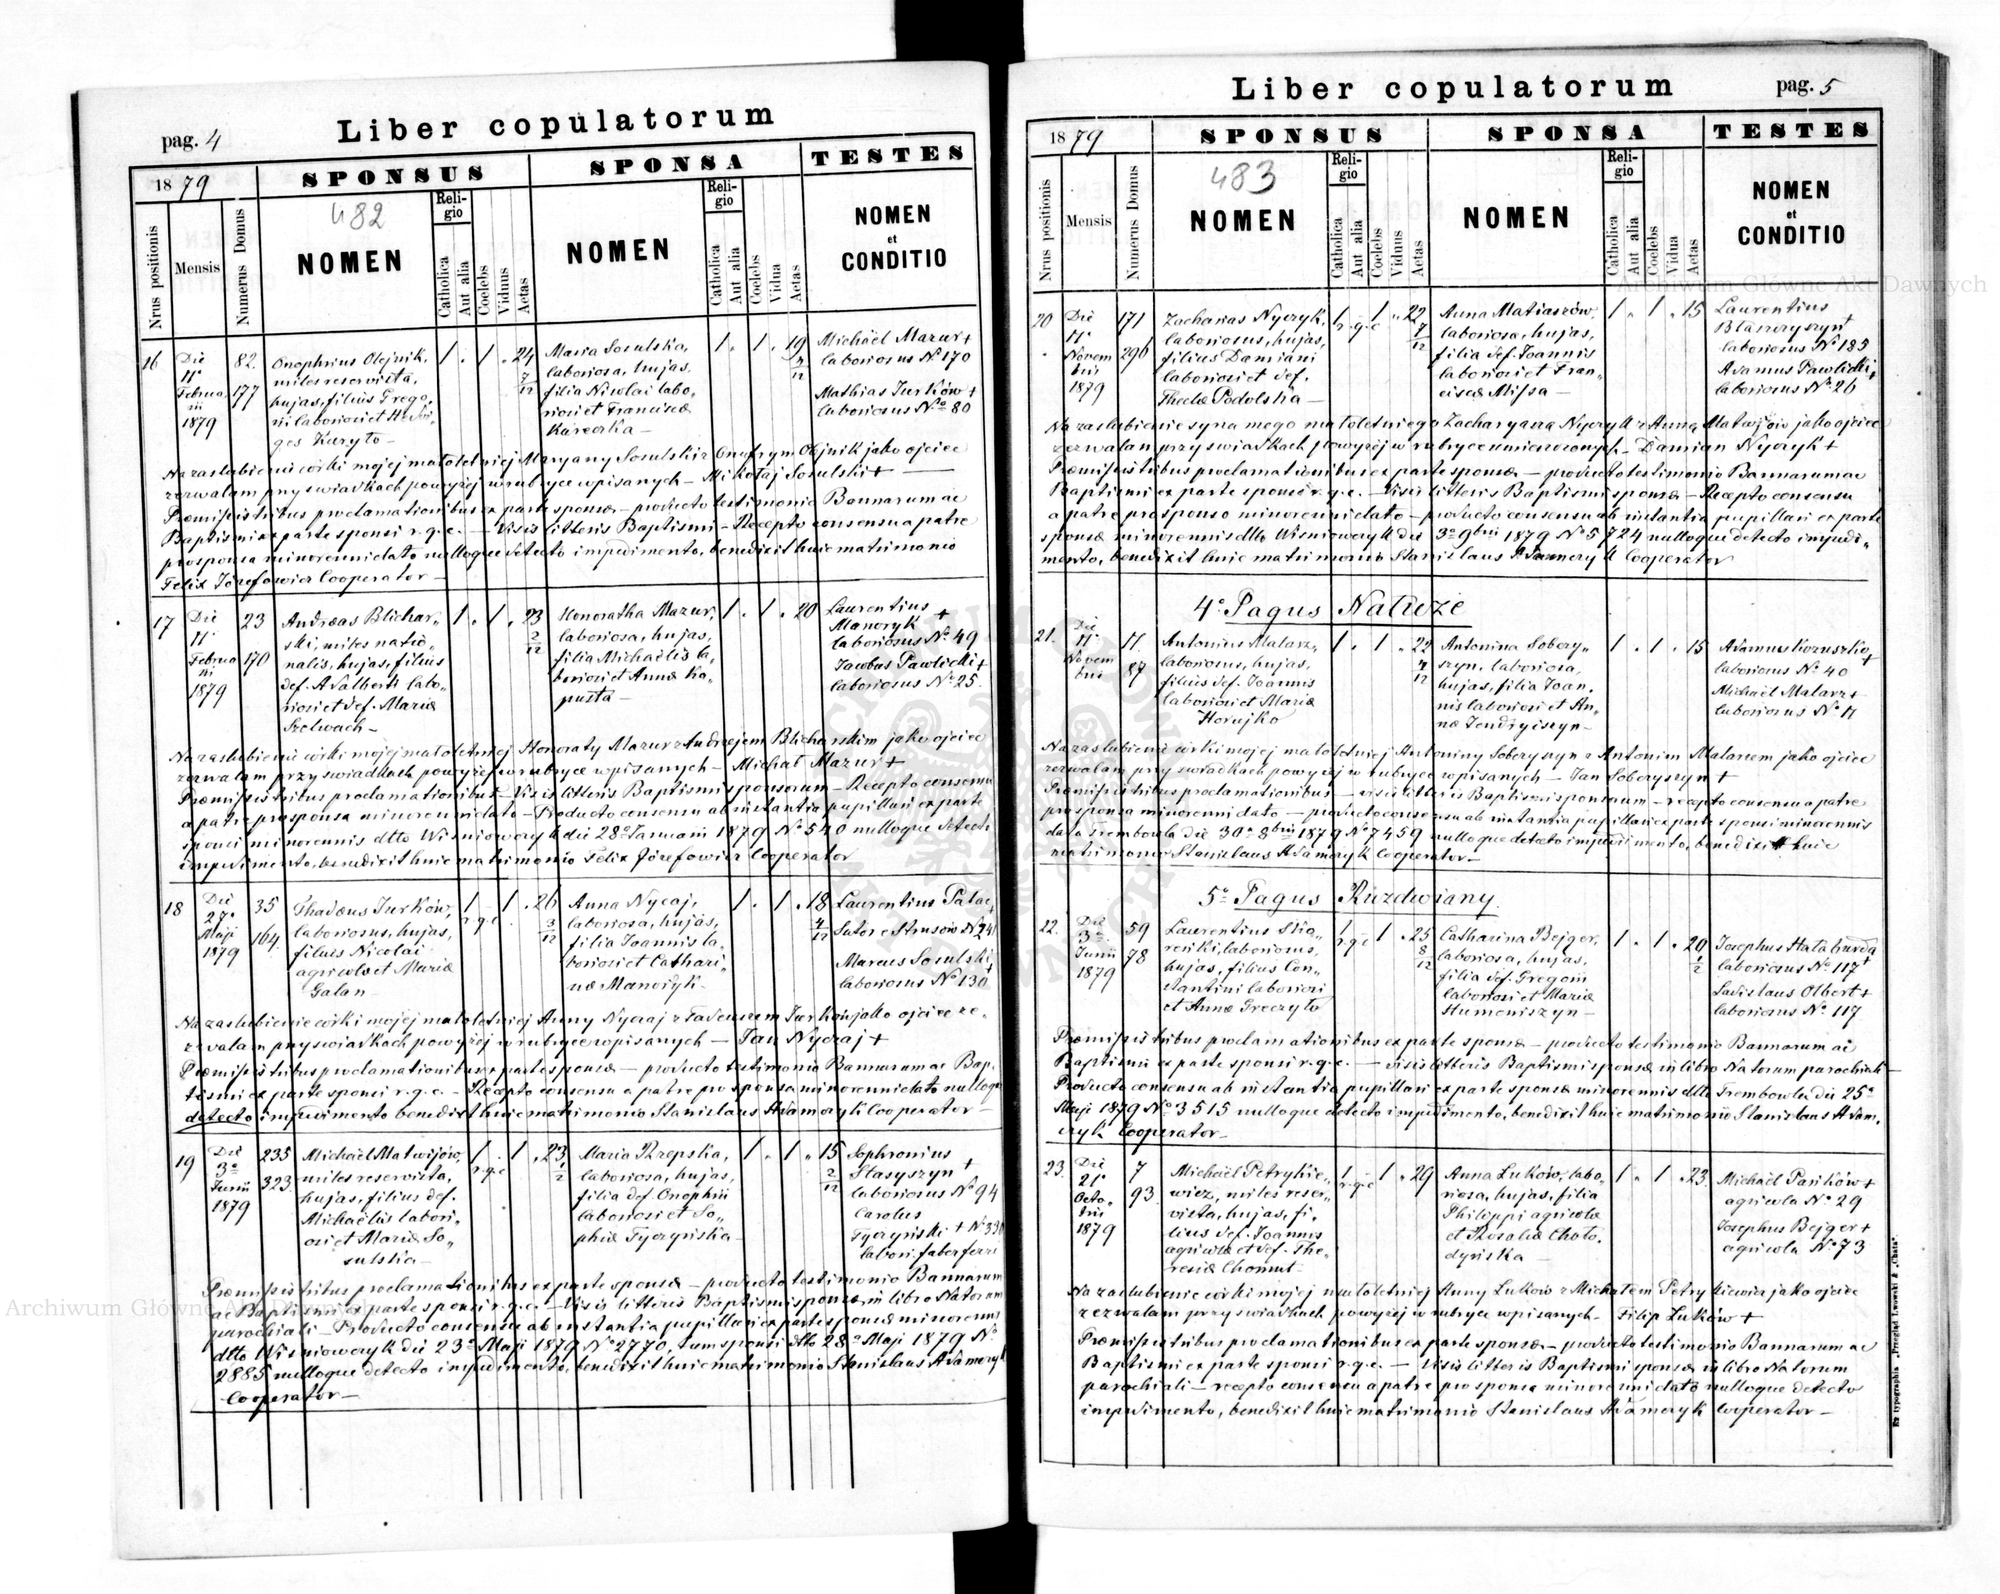 pag. 4
Liber copulatorum
1879
SPONSUS
SPONSA
TESTES
Nrus positionis
Mensis
Numerus Domus
482
NOMEN
Religio
Catholica
Aut alia
Coelebs
Viduus
Aetas
NOMEN
Religio
Catholica
Aut alia
Coelebs
Vidua
Aetas
NOMEN
et
CONDITIO
16
Die
11ª
Februa
rii
1879
82.
177
Onophrius Olejnik,
miles reservista,
hujas, filius Grego,,
rii laboriosi et Hedwi
ges Kuryto –
1 . 1 . 24
7/12
Maria Sosulska,
laboriosa, hujas,
filia Nicolai labo,,
riosi et Franciscæ
1 . 1 . 19
Michaël Mazur +
laboriosus Nº 170
Mathias Jurków +
laboriosus Nº 80
Na zaślubienie córki mojej małoletniej Maryany Sosulski z Onufrym Olejnik jako ojciec
zezwalam przy świadkach powyżej w rubryce wpisanych – Mikołaj Sosulski +
Præmissis tribus proclamationibus ex parte sponsæ – producto testimonio Bannarum ac
Baptismi ex parte sponsi r.g.c. – Visis litteris Baptismi – Recepto consensu a patre
pro sponsa minorenni dato nulloque detecto impedimento, benedixit huic matrimonio
Felix Józefowicz Cooperator –
17
Die
11ª
Februa
rii
1879
23
170
Andreas Blichar,,
ski, miles natio,,
nalis, hujas, filius
def. Adalberti labo,,
riosi et def. Mariæ
Szelwach –
1 . 1 . 23
2/12
Honoratha Mazur,
laboriosa, hujas,
filia Michaëlis la,,
boriosi et Annæ Ka,,
pusta –
1 . 1 . 20
Laurentius +
Manoryk
laboriosus Nº 49
Jacobus Pawlicki +
laboriosus Nº 25.
Na zaślubienie córki mojej małoletniej Honoraty Mazur z Andrzejem Blicharskim jako ojciec
zezwalam przy świadkach powyżej w rubryce wpisanych – Michał Mazur +
Præmissis tribus proclamationibus – Visis litteris Baptismi sponsorum – Recepto consensu
a patre pro sponsa minorenni dato – Producto consensu ab instantia pupillari ex parte
sponsi minorennis dtto Wiśniowczyk die 28ª Januarii 1879 Nº 540 nulloque detecto
impedimento, benedixit huic matrimonio Felix Józefowicz Cooperator
18
Die
27ª
Maji
1879
35
164.
Thadæus Jurków,
laboriosus, hujas,
filius Nicolai
agricolæ et Mariæ
Galan –
1 r.g.c . 1 . 26
3/12
Anna Nycaj,
laboriosa, hujas,
filia Joannis la,,
boriosi et Cathari,,
næ Manoryk –
1 . 1 . 18
4/12
Marcus Sosulski +
laboriosus Nº 130
Na zaślubienie córki mojej małoletniej Anny Nycaj z Tadeuszem Jurków jako ojciec ze,,
zwalam przy świadkach powyżej w rubryce wpisanych – Jan Nycaj +
Præmissis tribus proclamationibus ex parte sponsæ – producto testimonio Bannarum ac Bap,,
tismi ex parte sponsi r.g.c. – Recepto consensu a patre pro sponsa minorenni dato nulloque
detecto impedimento benedixit huic matrimonio Stanislaus Adamczyk Cooperator –
19
Die
3ª
Junii
1879
235
323
Michaël Matwijów,
miles reservista,
hujas, filius def.
Michaëlis labori,,
osi et Mariæ So,,
sulska –
1 r.g.c . 1 . 23
1/2
Maria Rzepska,
laboriosa, hujas,
filia def. Onophrii
laboriosi et So,,
phiæ Tyczyńska –
1 . 1 . 15
2/12
Sophronius
Stasyszyn +
laboriosus Nº 94
Carolus
Tyczyński + Nº 330
labori. faber ferri
Præmissis tribus proclamationibus ex parte sponsæ – producto testimonio Bannarum
ac Baptismi ex parte sponsi r.g.c. – Visis litteris Baptismi sponsæ in libro Natorum
parochiali – Producto consensu ab instantia pupillari ex parte sponsæ minorennis
dtto Wiśniowczyk die 23ª Maji 1879 Nº 2770, tum sponsi dtto 28ª Maji 1879 Nº
2885 nulloque detecto impedimento, benedixit huic matrimonio Stanislaus Adamczyk
Cooperator –
Liber copulatorum
pag. 5
1879
SPONSUS
SPONSA
TESTES
Nrus positionis
Mensis
Numerus Domus
483
NOMEN
Religio
Catholica
Aut alia
Coelebs
Viduus
Aetas
NOMEN
Religio
Catholica
Aut alia
Coelebs
Vidua
Aetas
NOMEN
et
CONDITIO
20
Die
11ª
Novem
bris
1879
171
296
Zacharias Nyczyk,
laboriosus, hujas,
filius Damiani
laboriosi et def.
Theclæ Podolska –
1 r.g.c 1 . 22
7/12
Anna Matiaszów,
laboriosa, hujas,
filia def. Joannis
laboriosi et Fran,,
ciscæ Missa –
1 . 1 . 15
Laurentius
Błaszczyszyn +
laboriosus Nº 185
Adamus Pawlicki +
laboriosus Nº 26
Na zaślubienie syna mego małoletniego Zacharyasza Nyczyk z Anną Matwijów jako ojciec
zezwalam przy świadkach powyżej w rubryce umieszczonych – Damian Nyczyk +
Præmissis tribus proclamationibus ex parte sponsæ – producto testimonio Bannarum ac
Baptismi ex parte sponsi r.g.c. – Visis litteris Baptismi sponsæ – Recepto consensu
a patre pro sponso minorenni dato – producto consensu ab instantia pupillari ex parte
sponsæ minorennis dtto Wiśniowczyk die 3ª 9bris 1879 Nº 5724 nulloque detecto impedi,,
mento, benedixit huic matrimonio Stanislaus Adamczyk Cooperator
4º Pagus Nałuże
21.
Die
11ª
Novem
bris
11.
87
Antonius Malarz,
laboriosus, hujas,
filius def. Joannis
laboriosi et Mariæ
Horujko
1 . 1 . 22
Antonina Sobery,,
szyn, laboriosa,
hujas, filia Joan,,
nis laboriosi et An,,
næ Jendryiszyn –
1 . 1 . 15
Adamus Kozuszko +
laboriosus Nº 40
Michaël Malarz +
laboriosus Nº 11
Na zaślubienie córki mojej małoletniej Antoniny Soberyszyn z Antonim Malarzem jako ojciec
zezwalam przy świadkach powyżej w rubryce wpisanych – Jan Soberyszyn +
Præmissis tribus proclamationibus – visis litteris Baptismi sponsorum – recepto consensu a patre
pro sponsa minorenni dato – producto consensu ab instantia pupillari ex parte sponsi minorennis
dato Trembowla die 30ª 8bris 1879 Nº 7459 nulloque detecto impedimento, benedixit huic
matrimonio Stanislaus Adamczyk Cooperator –
5º Pagus Ruzdwiany
22.
Die
3ª
Junii
1879
59
78
Laurentius Slio,,
renki, laboriosus,
hujas, filius Con,,
stantini laboriosi
et Annæ Greczyło
1 r.g.c 1 . 25
8/12
Catharina Bejger,
laboriosa, hujas,
filia def. Gregorii
laboriosi et Mariæ
Humeniszyn –
1 . 1 . 20
1/2
Josephus Hałaburda
laboriosus Nº 117 +
Ladislaus Olbert +
laboriosus Nº 117
Præmissis tribus proclamationibus ex parte sponsæ – producto testimonio Bannarum ac
Baptismi ex parte sponsi r.g.c. – visis litteris Baptismi sponsæ in libro Natorum parochiali –
Producto consensu ab instantia pupillari ex parte sponsæ minorennis dtto Trembowla die 25ª
Maji 1879 Nº 3515 nulloque detecto impedimento, benedixit huic matrimonio Stanislaus Adam,,
czyk Cooperator –
23.
Die
21ª
Octo,,
bris
1879
7
93.
Michaël Petrykie,,
wicz, miles reser,,
vista, hujas, fi,,
lius def. Joannis
agricolæ et def. The,,
resiæ Chomut –
1 r.g.c 1 . 29
Anna Luków, labo,,
riosa, hujas, filia
Philippi agricolæ
et Rosaliæ Choło,,
dyńska –
1 . 1 . 23.
Michaël Pańków +
agricola Nº 29
Josephus Bejger +
agricola Nº 73
Na zaślubienie córki mojej małoletniej Anny Luków z Michałem Petrykiewicz jako ojciec
zezwalam przy świadkach powyżej w rubryce wpisanych – Filip Luków +
Præmissis tribus proclamationibus ex parte sponsæ – producto testimonio Bannarum ac
Baptismi ex parte sponsi r.g.c. – Visis litteris Baptismi sponsæ in libro Natorum
parochiali – recepto consensu a patre pro sponsa minorenni dato nulloque detecto
impedimento, benedixit huic matrimonio Stanislaus Adamczyk Cooperator –
Ex typographia „Przegląd Lwowski & „Chata".
Archiwum Główne Akt Dawnych
Archiwum Główne Akt Dawnych